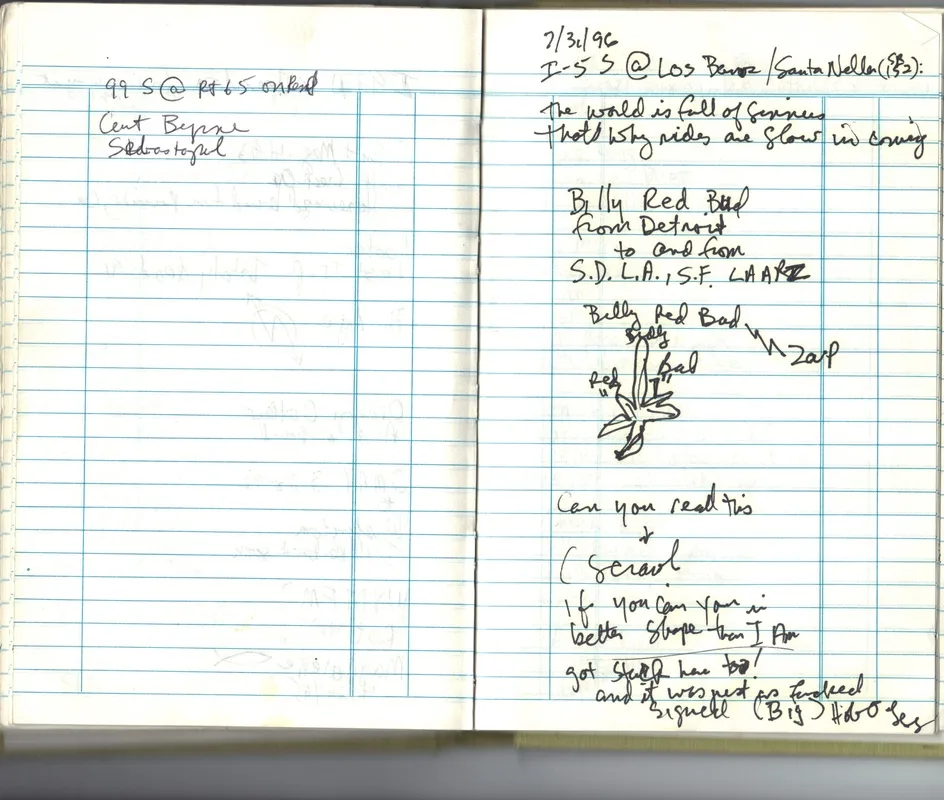 99 S @ Rt 65 onRamp
Cent
7/31/96
I-5 S @ Los Banos/Santa Nella (152):
the world is full of sinners
that's why rides are slow in coming
Billy Red Bud
from Detroit
to and from
S.D. L.A., S.F. LAARZ
Billy Red Bad
Billy
Zap
Bad
Red
"
Can you read this
+
( Scrawl
if you can you in
better shape than I Am
got stuck here too!
and it was just as fucked
signed (Big) Hobo